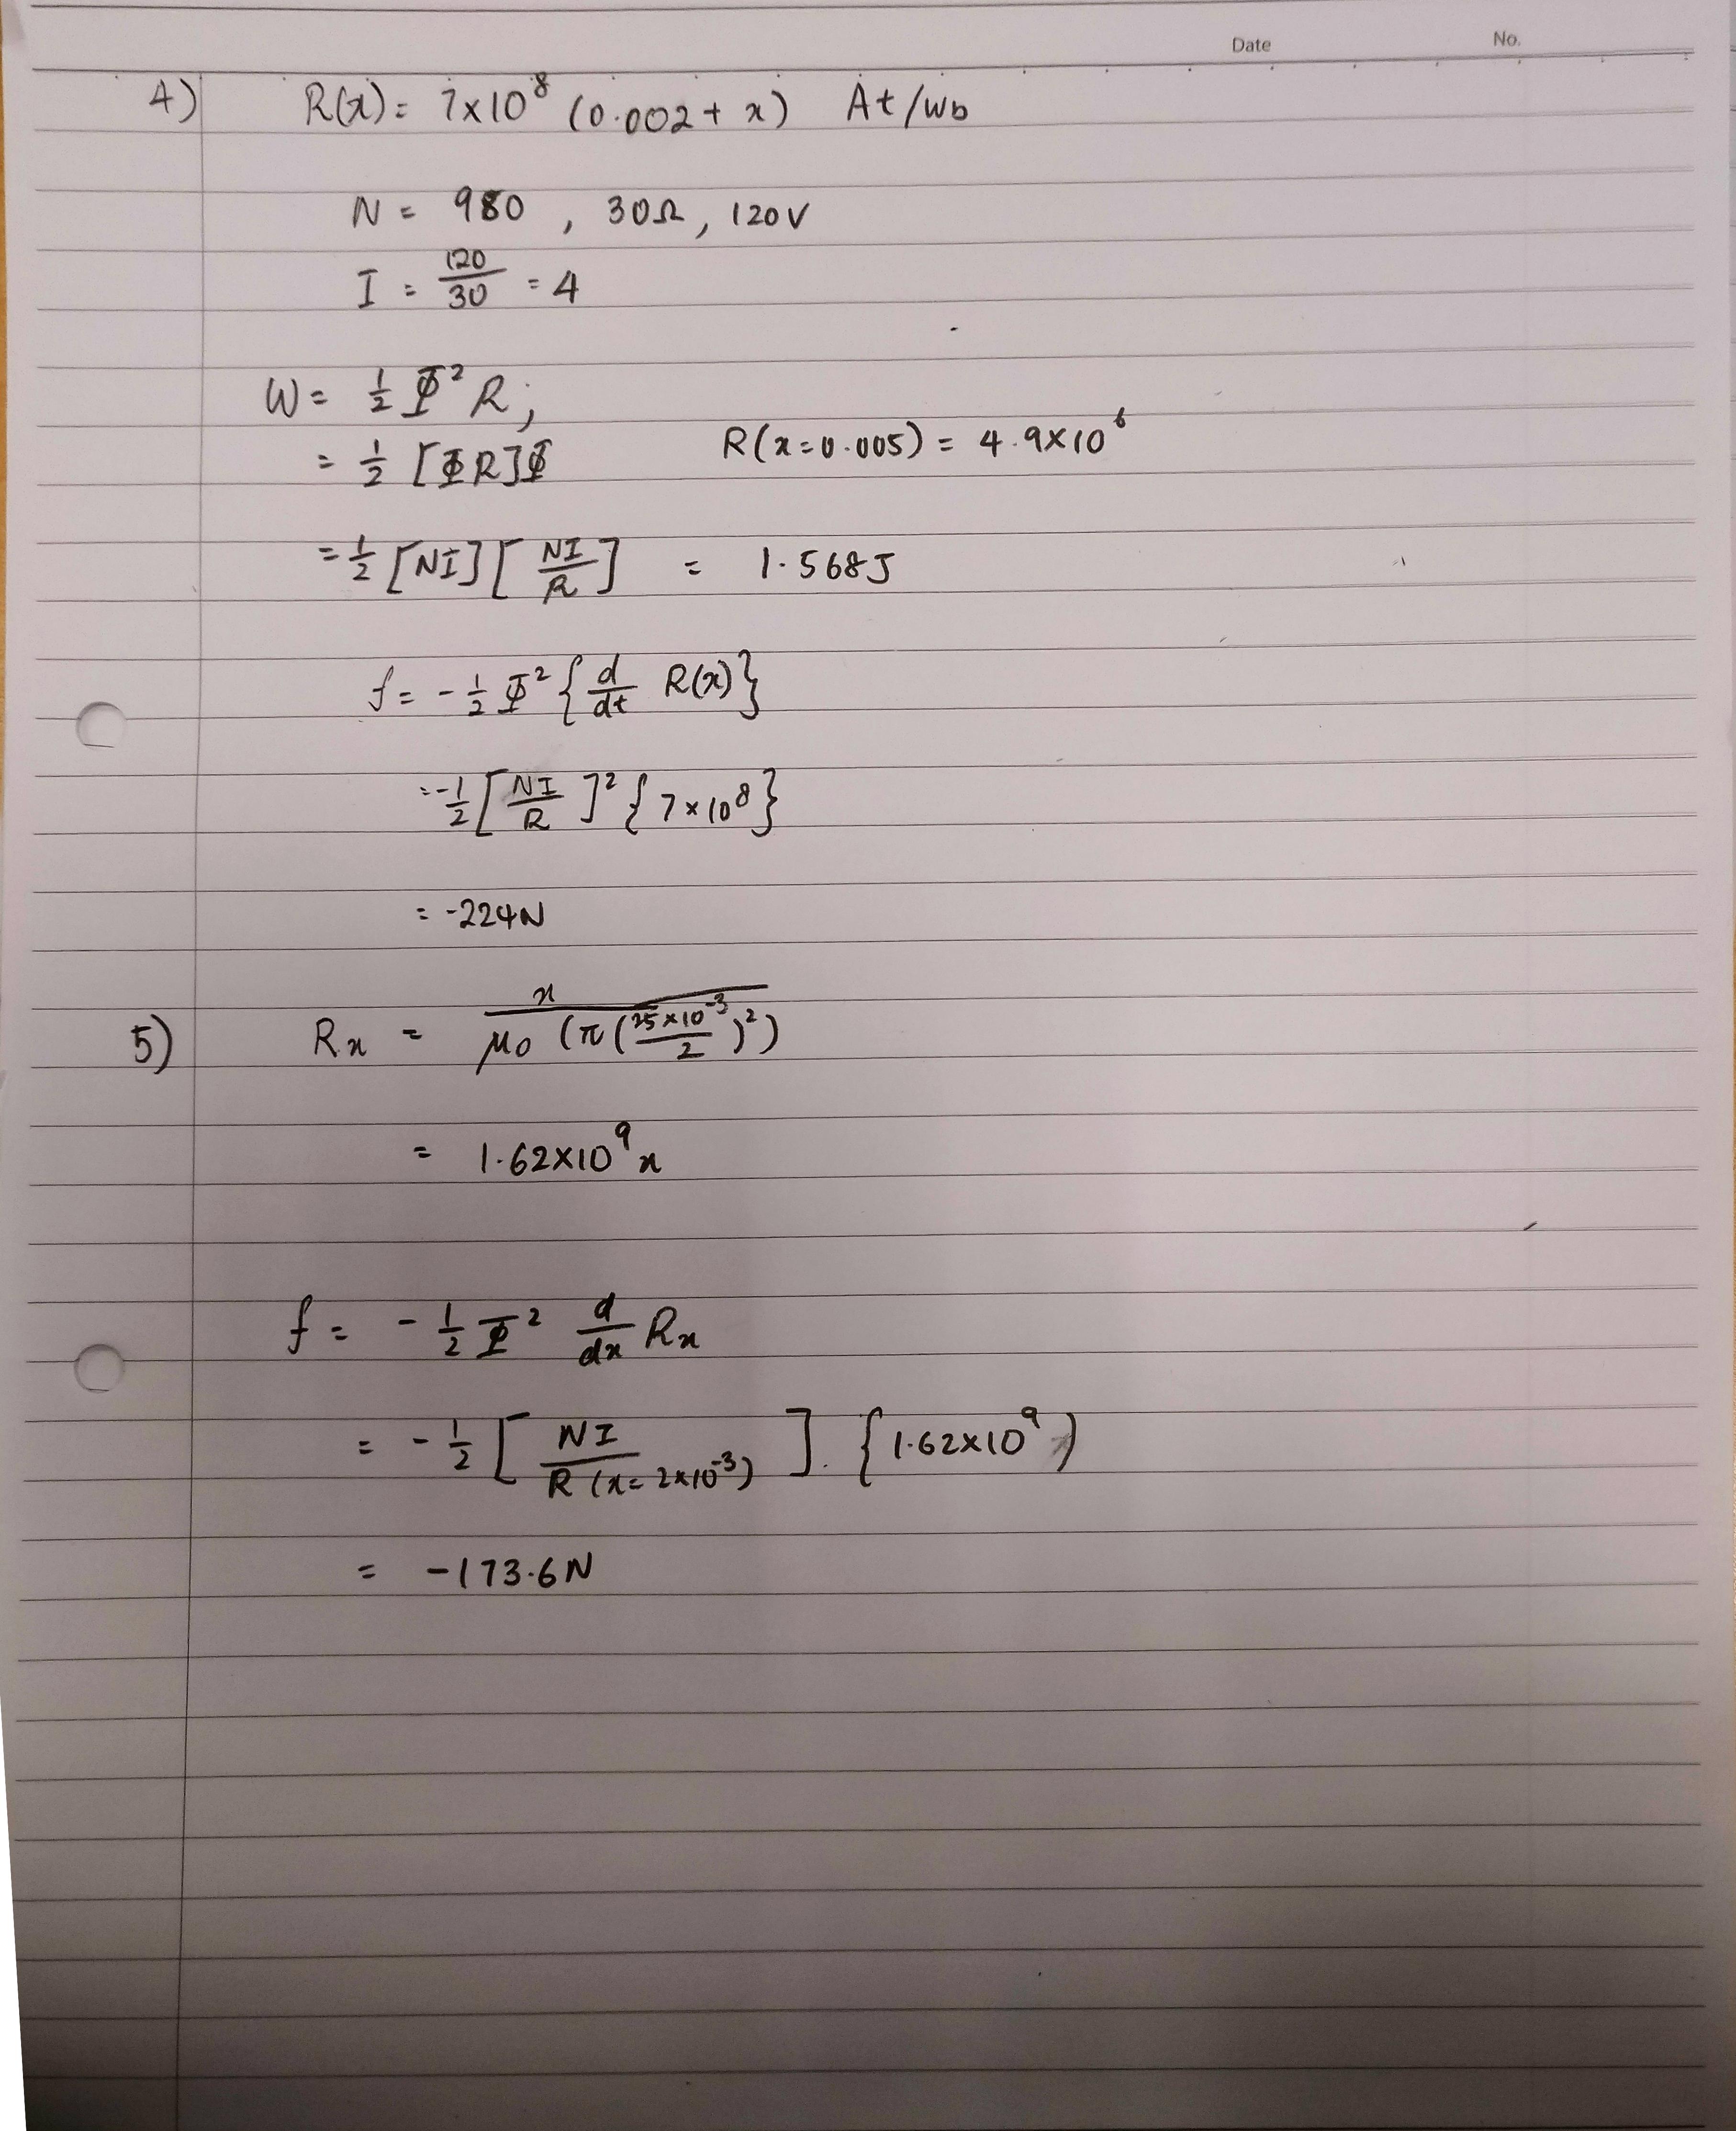 Date No.
4) R(x) = 7×10⁸ (0.002 + x) At/wb
N = 980 , 30Ω, 120V
I = 120/30 = 4
W = ½ Φ² R;
= ½ [ΦR]Φ R(x=0.005) = 4.9×10⁶
= ½ [NI] [NI/R] = 1.568J
f = -½ Φ² {d/dt R(x)}
= -½ [NI/R]² {7×10⁸}
= -224N
5) Rx = x / μ₀ (π (25×10⁻³/2)²)
= 1.62×10⁹x
f = -½ Φ² d/dx Rx
= -½ [NI / R(x=2×10⁻³)] . {1.62×10⁹}
= -173.6N